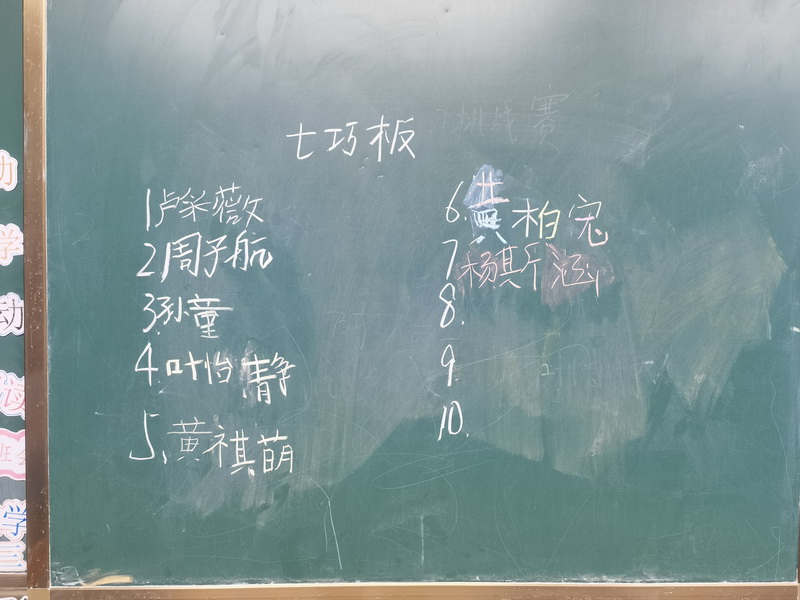 七巧板
挑战赛
1卢采薇
2周子航
3.孙童
4.叶怡静
5.黄祺萌
6.黄柏宽
7杨斯涵
8.
9.
10.
动
学
动
读
班会
学